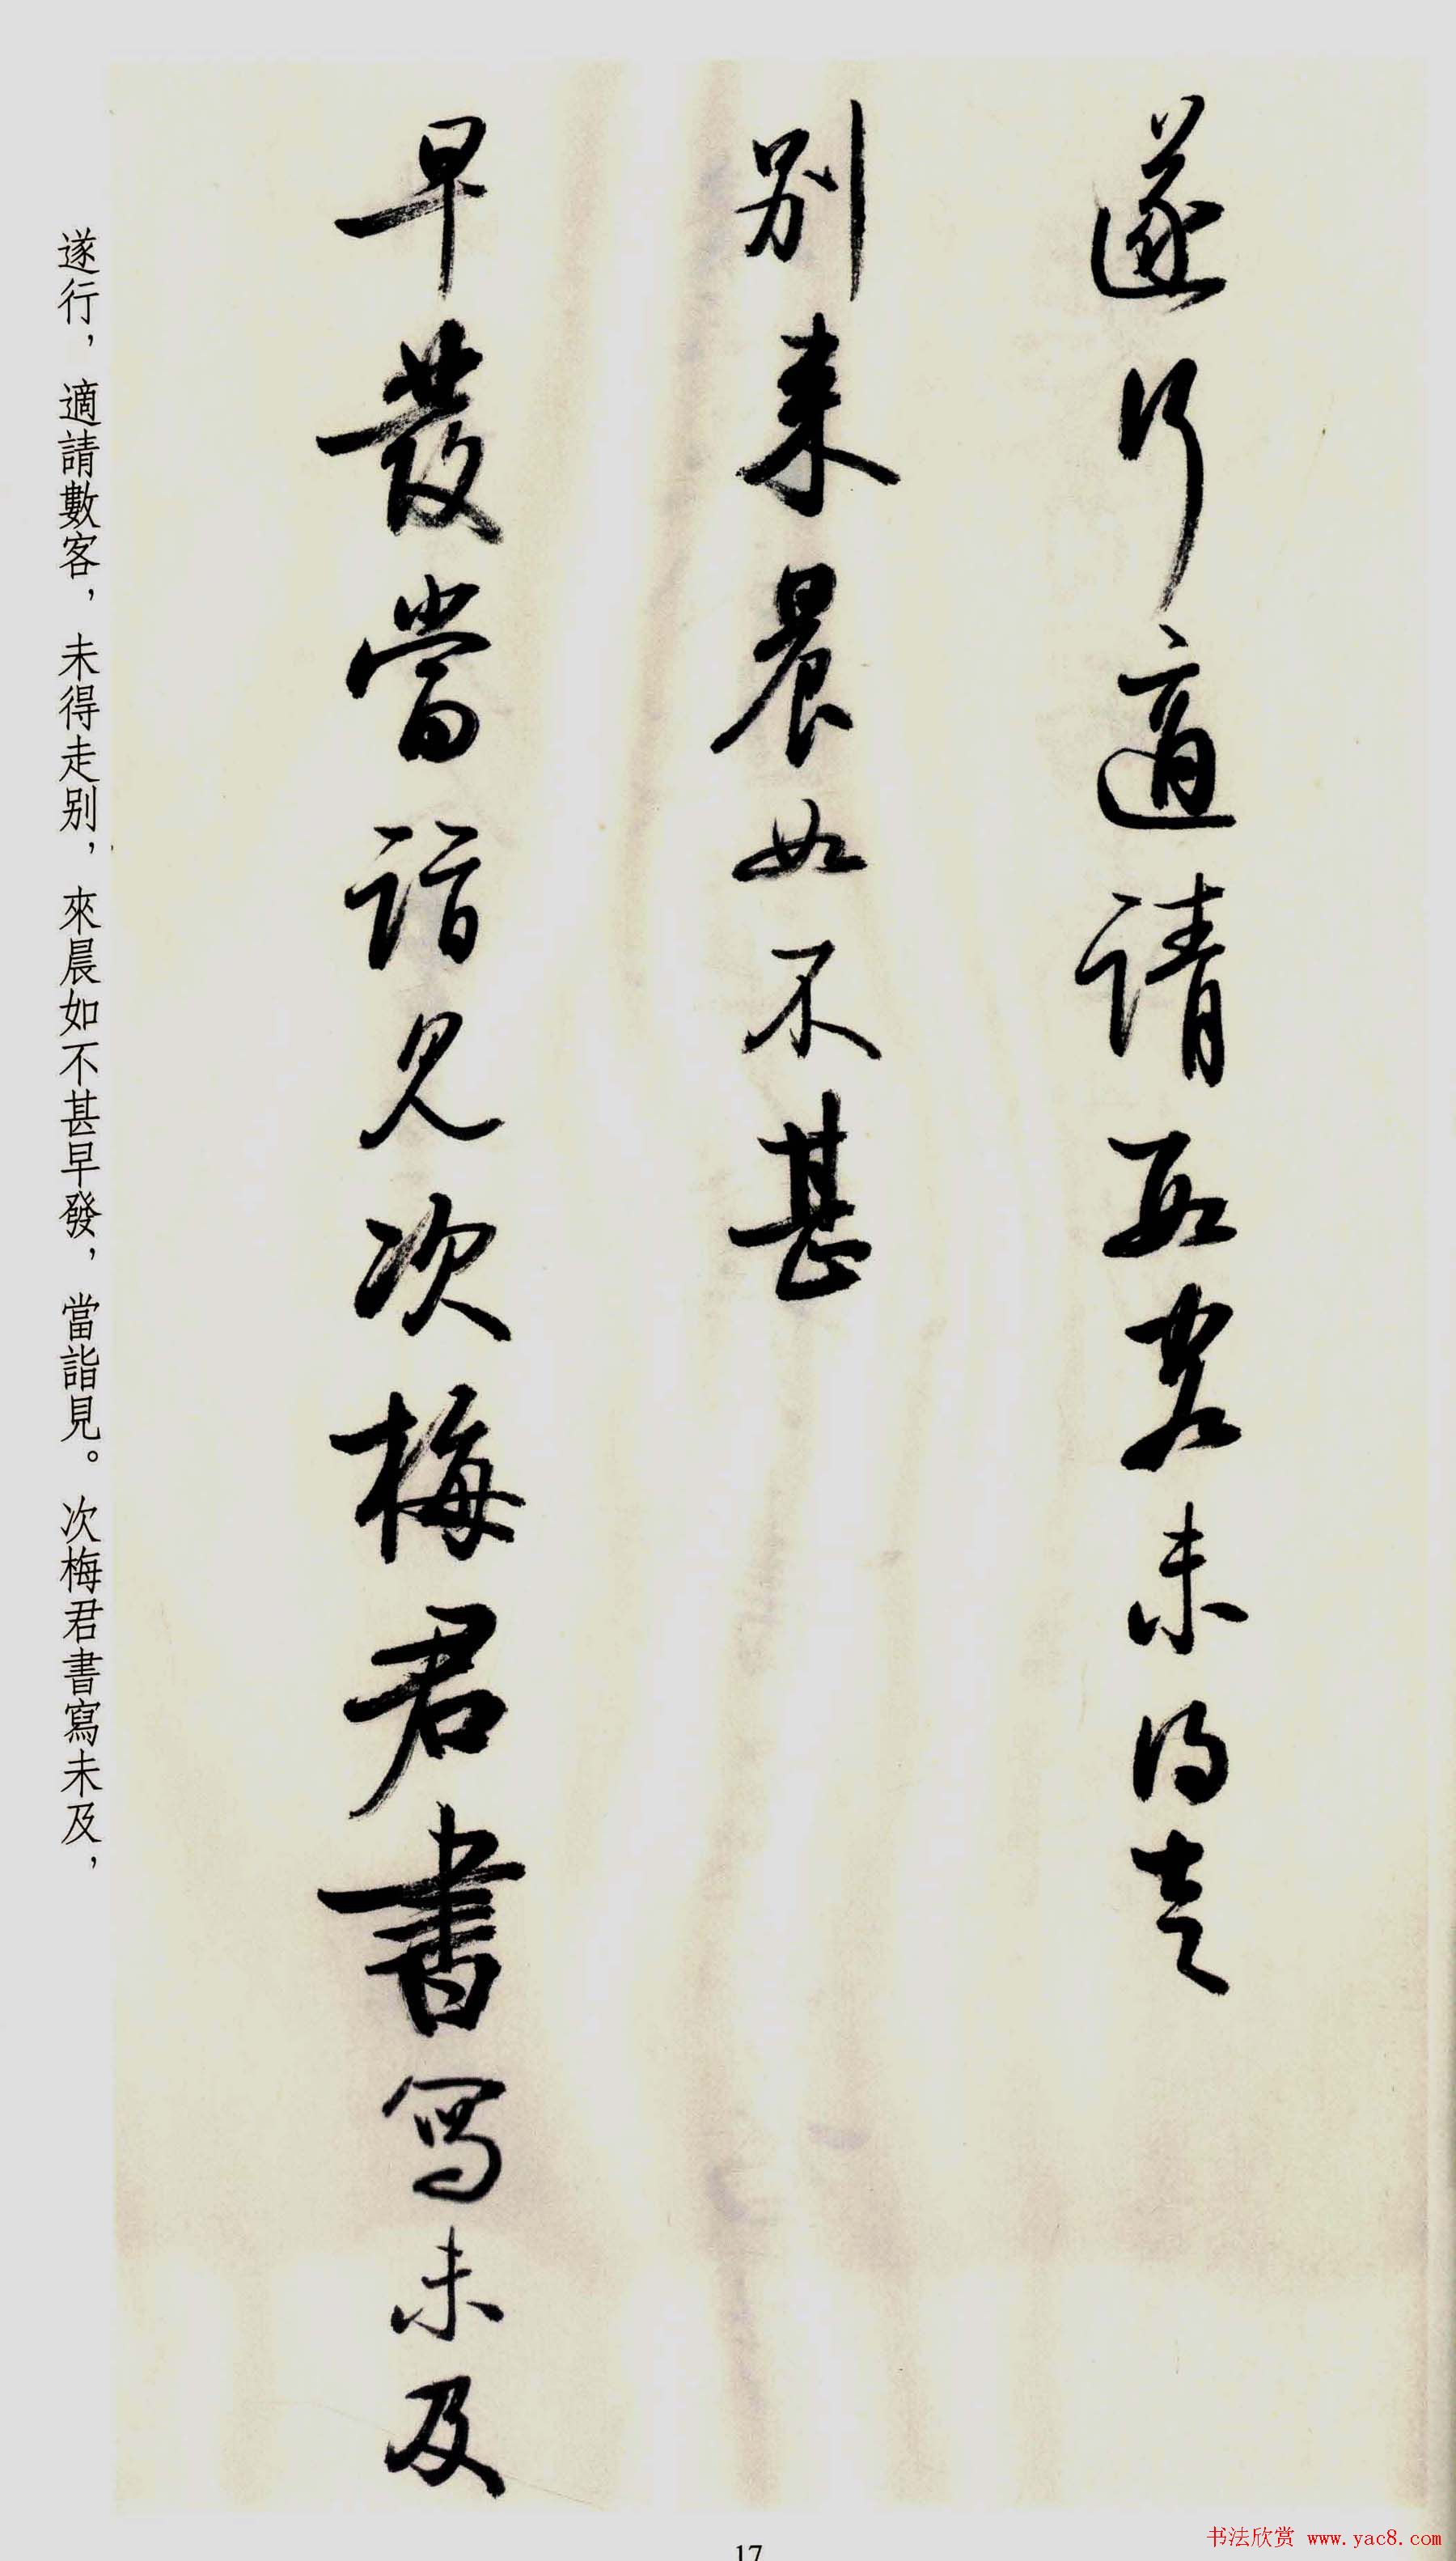 遂行適請數客未得走
别来晨如不甚
早發當詣見次梅君書寫未及
遂行，適請數客，未得走别，來晨如不甚早發，當詣見。次梅君書寫未及，
17
书法欣赏 www.yac8.com